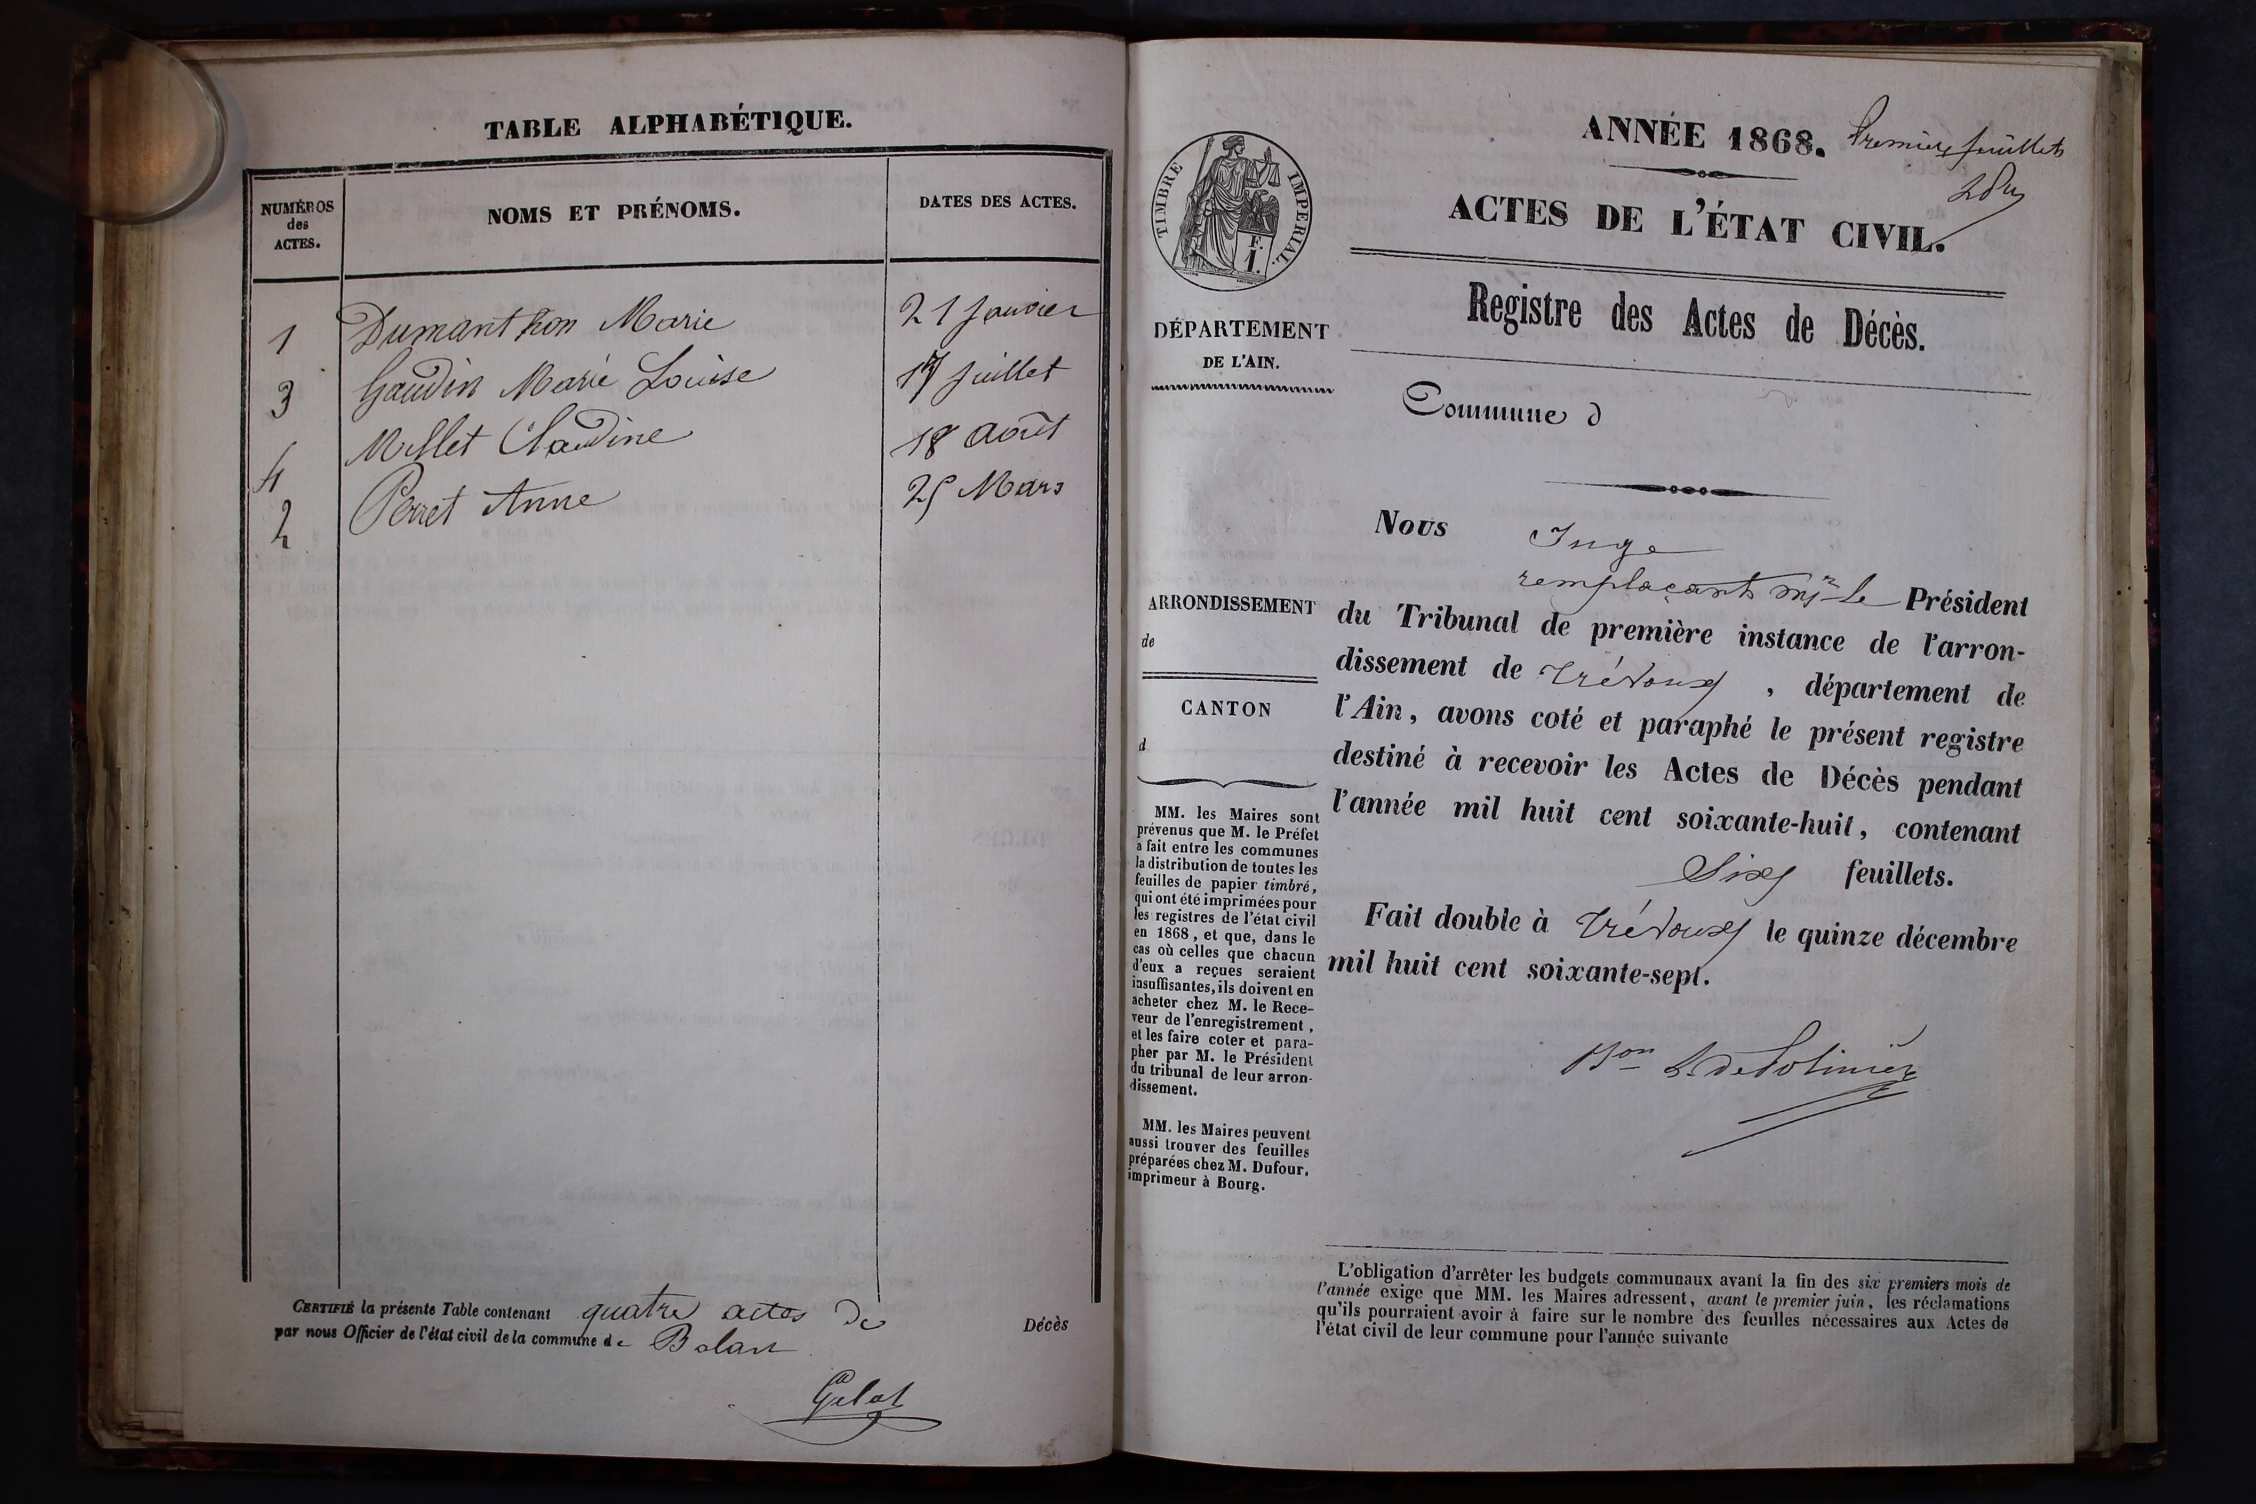 TABLE ALPHABÉTIQUE.
NUMÉROS des ACTES.
NOMS ET PRÉNOMS.
DATES DES ACTES.
1 Dumanthon Marie 21 Janvier
3 Gaudin Marie Louise 17 Juillet
4 Millet Claudine 18 Août
2 Perret Anne 25 Mars
CERTIFIÉ la présente Table contenant quatre actes de Décès
par nous Officier de l'état civil de la commune de Balan
Gelat
ANNÉE 1868. Premier feuillet
ACTES DE L'ÉTAT CIVIL.
TIMBRE IMPERIAL.
F.
1.
Registre des Actes de Décès.
DÉPARTEMENT
DE L'AIN.
Commune d
ARRONDISSEMENT
de
CANTON
d
MM. les Maires sont
prévenus que M. le Préfet
a fait entre les communes
la distribution de toutes les
feuilles de papier timbré,
qui ont été imprimées pour
les registres de l'état civil
en 1868, et que, dans le
cas où celles que chacun
d'eux a reçues seraient
insuffisantes, ils doivent en
acheter chez M. le Rece-
veur de l'enregistrement,
et les faire coter et para-
pher par M. le Président
du tribunal de leur arron-
dissement.
MM. les Maires peuvent
aussi trouver des feuilles
préparées chez M. Dufour,
imprimeur à Bourg.
Nous Juge
remplaçant Mr le Président
du Tribunal de première instance de l'arron-
dissement de Trévoux, département de
l'Ain, avons coté et paraphé le présent registre
destiné à recevoir les Actes de Décès pendant
l'année mil huit cent soixante-huit, contenant
Six feuillets.
Fait double à Trévoux le quinze décembre
mil huit cent soixante-sept.
Bon
L'obligation d'arrêter les budgets communaux avant la fin des six premiers mois de
l'année exige que MM. les Maires adressent, avant le premier juin, les réclamations
qu'ils pourraient avoir à faire sur le nombre des feuilles nécessaires aux Actes de
l'état civil de leur commune pour l'année suivante